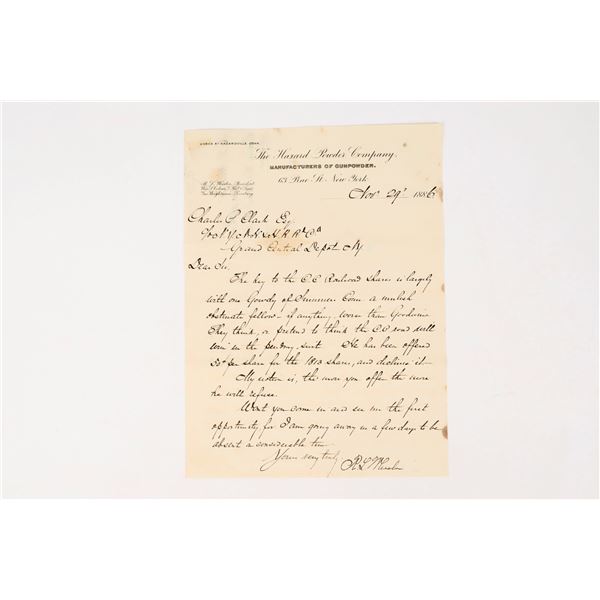 WORKS AT HAZARDVILLE CONN.
The Hazard Powder Company.
MANUFACTURERS OF GUNPOWDER.
63 Pine St. New York
Nov 29" 1886
Charles P. Clark Esq
N.Y. N.H. & H. R Rd Co
Grand Central Depot NY
Dear Sir.
The key to the C C Railroad shares is largely
with one Gowdy of Conn a mulish
obstinate fellow - if anything, worse than Goodwin
They think, or pretend to think the C C road will
win in the pending suit. He has been offered
50¢ per share for the shares, and declines it -
My notion is, the more you offer the more
he will refuse.
Wont you come in and see me the first
opportunity for I am going away in a few days to be
absent a considerable time
Yours very truly